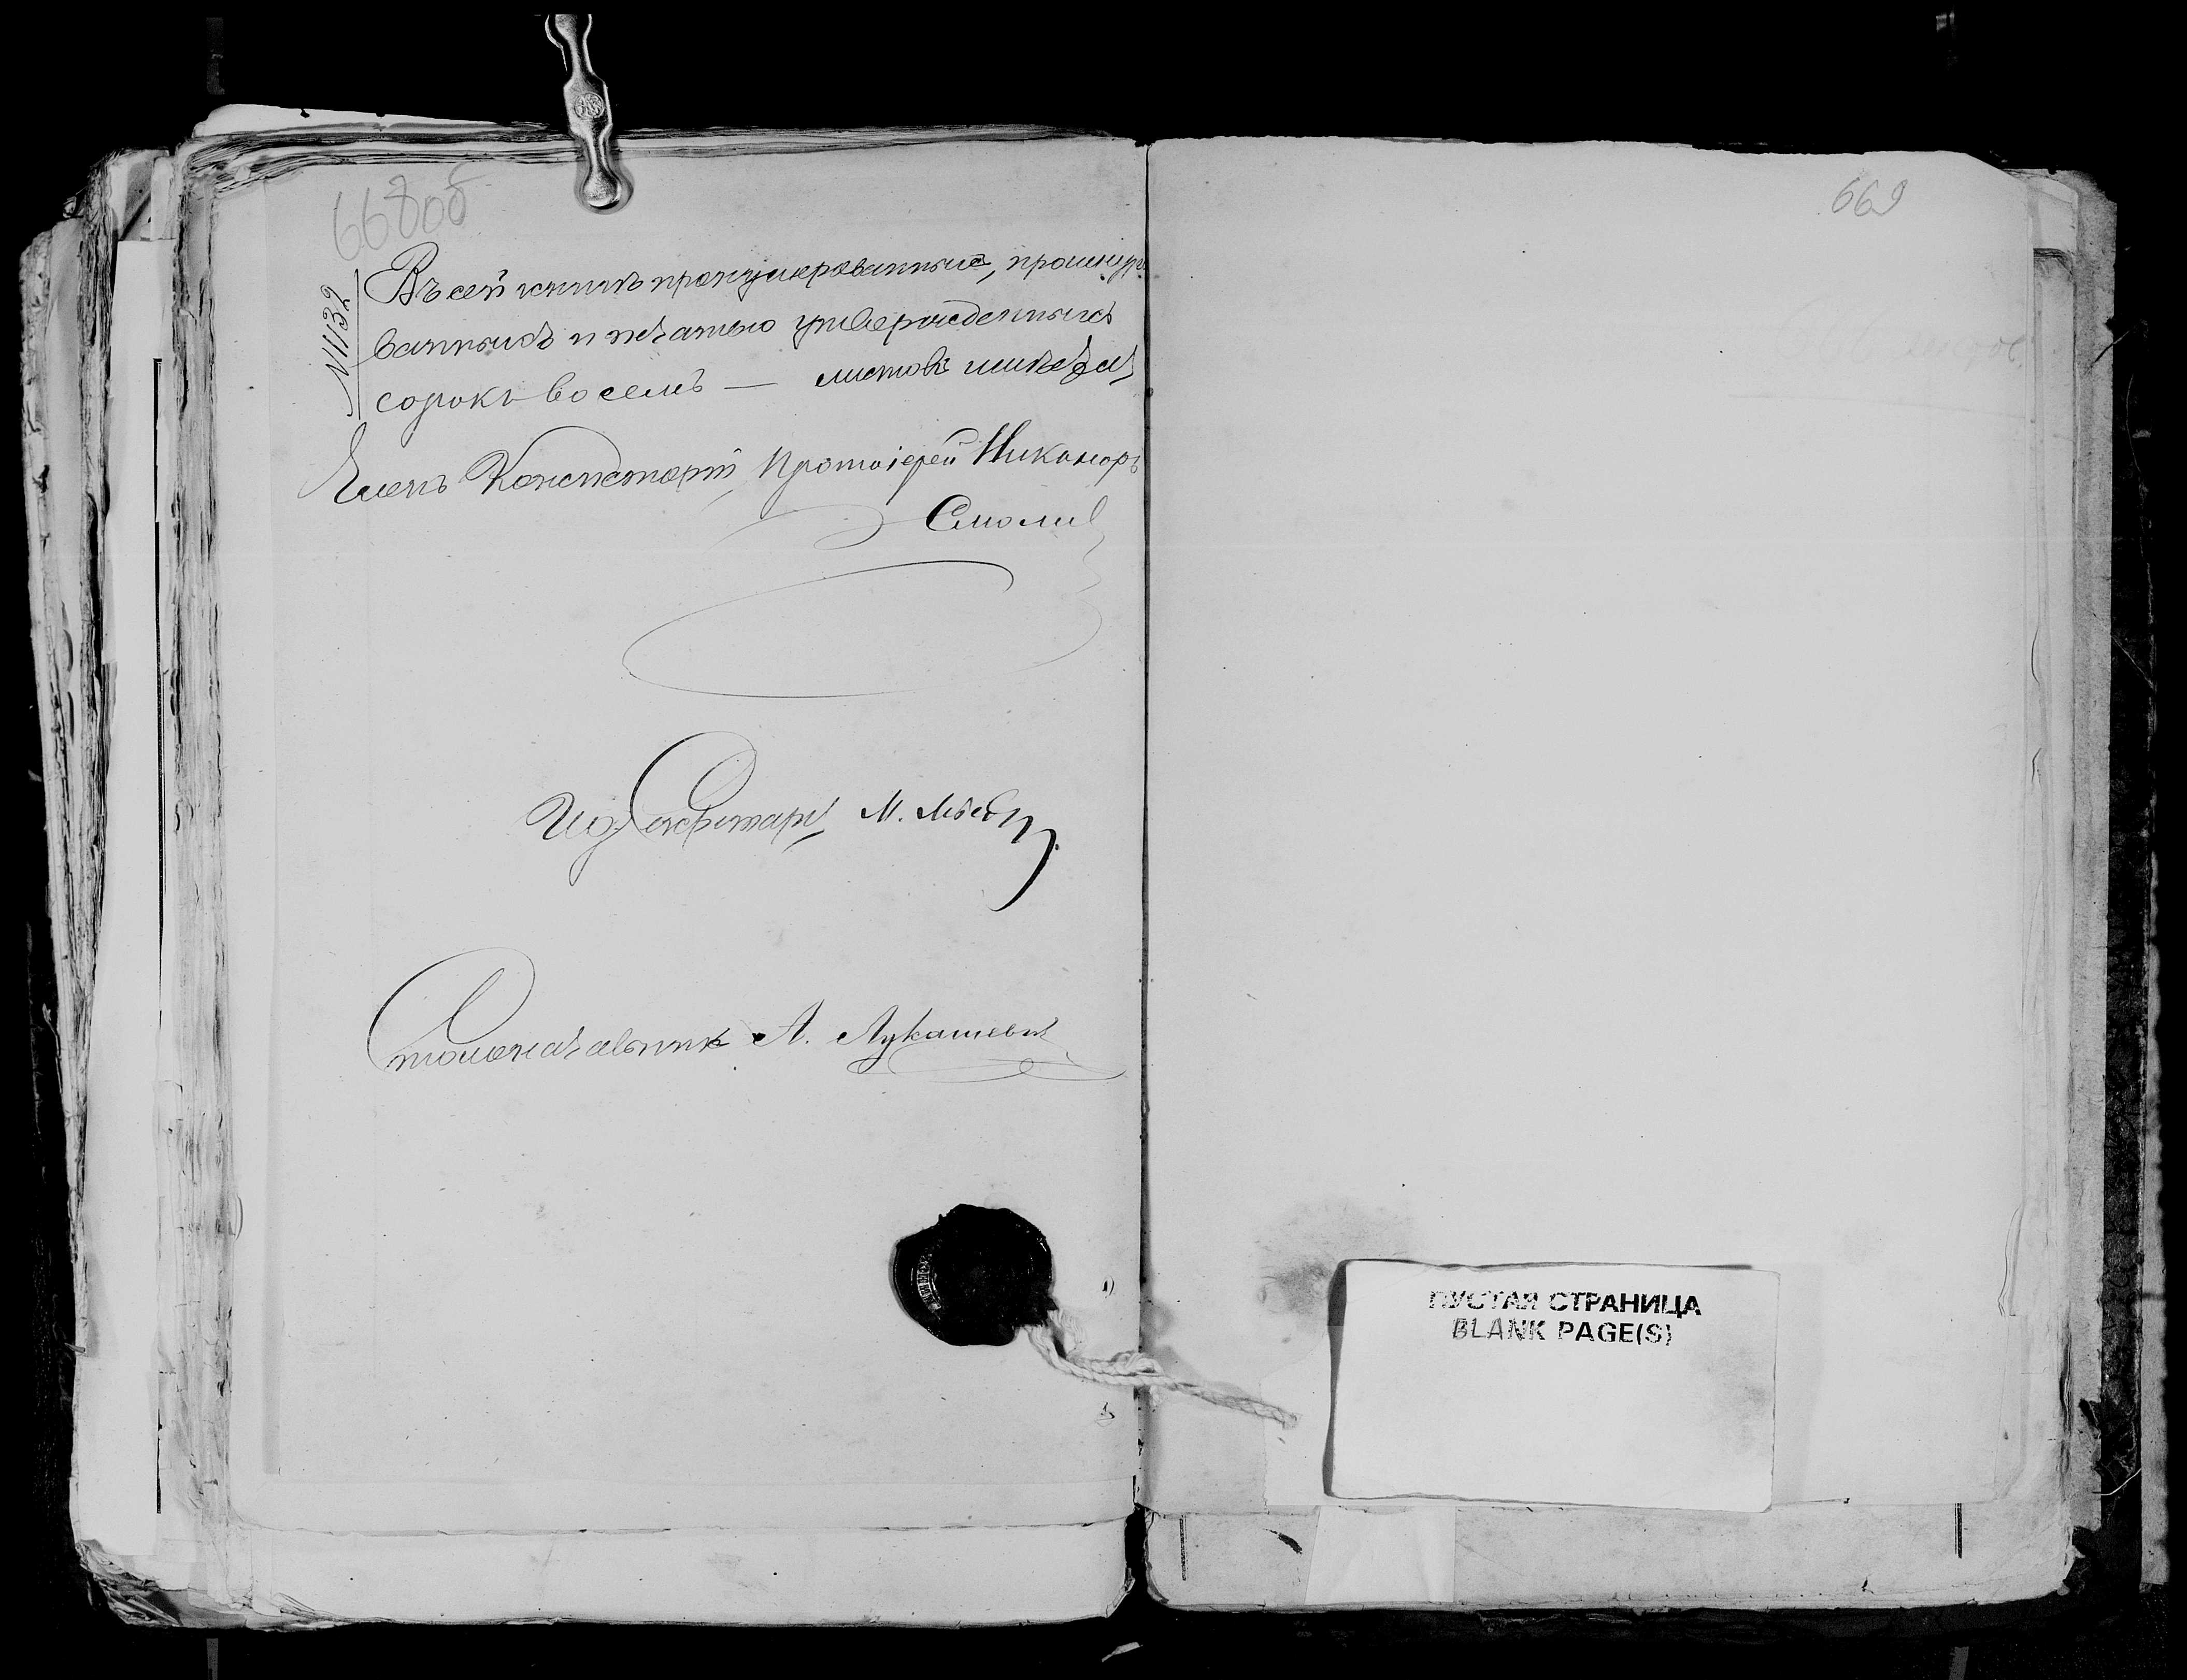 668об
№ 1132
Въ сей книгѣ пронумерованныхъ, прошнуро
ванныхъ и печатью утвержденныхъ
сорокъ восемь — листовъ имѣется
Членъ Консисторіи, Протоіерей Никаноръ
Смоличъ
И. д. Секретаря М.
Столоначальникъ А. Лукашевичъ
669
ПУСТАЯ СТРАНИЦА
BLANK PAGE(S)